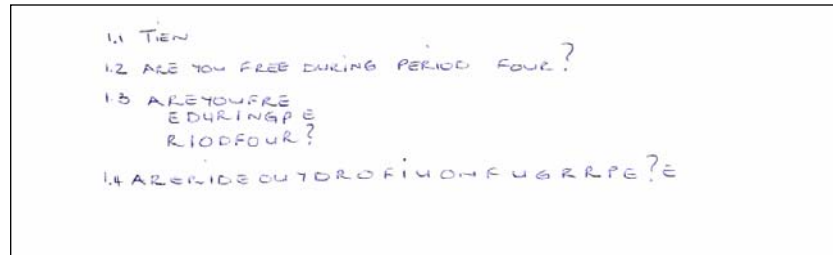 1.1 TIEN
1.2 ARE YOU FREE DURING PERIOD FOUR?
1.3 AREYOUFRE
EDURINGPE
RIODFOUR?
1.4 ARERIDEOUYDROFIUONFUGRRPE?E